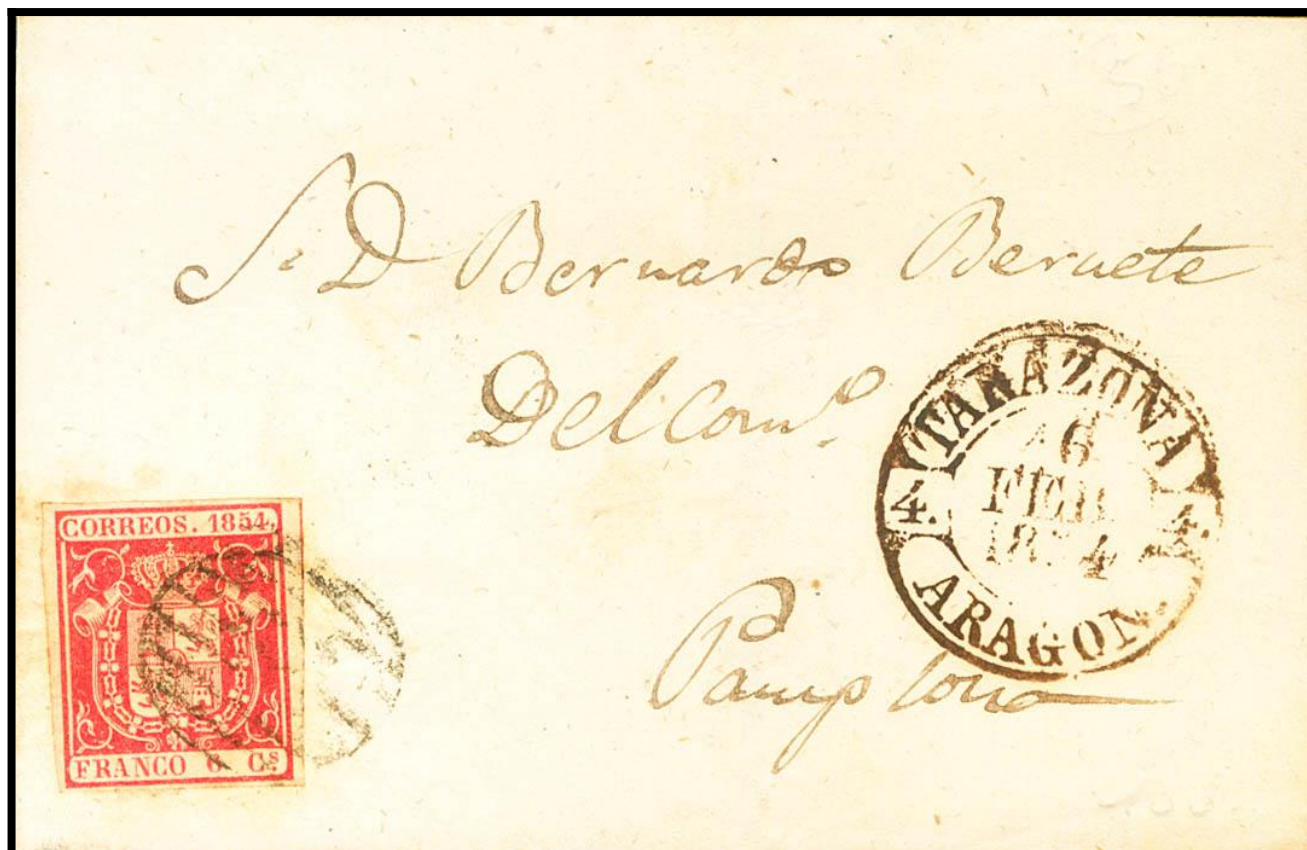 S. D Bernardo Beruete
Del Com.º
Pamplona
TARAZONA
6
FEB.
1854
4. 4.
ARAGON.
CORREOS. 1854.
FRANCO 6 Cs